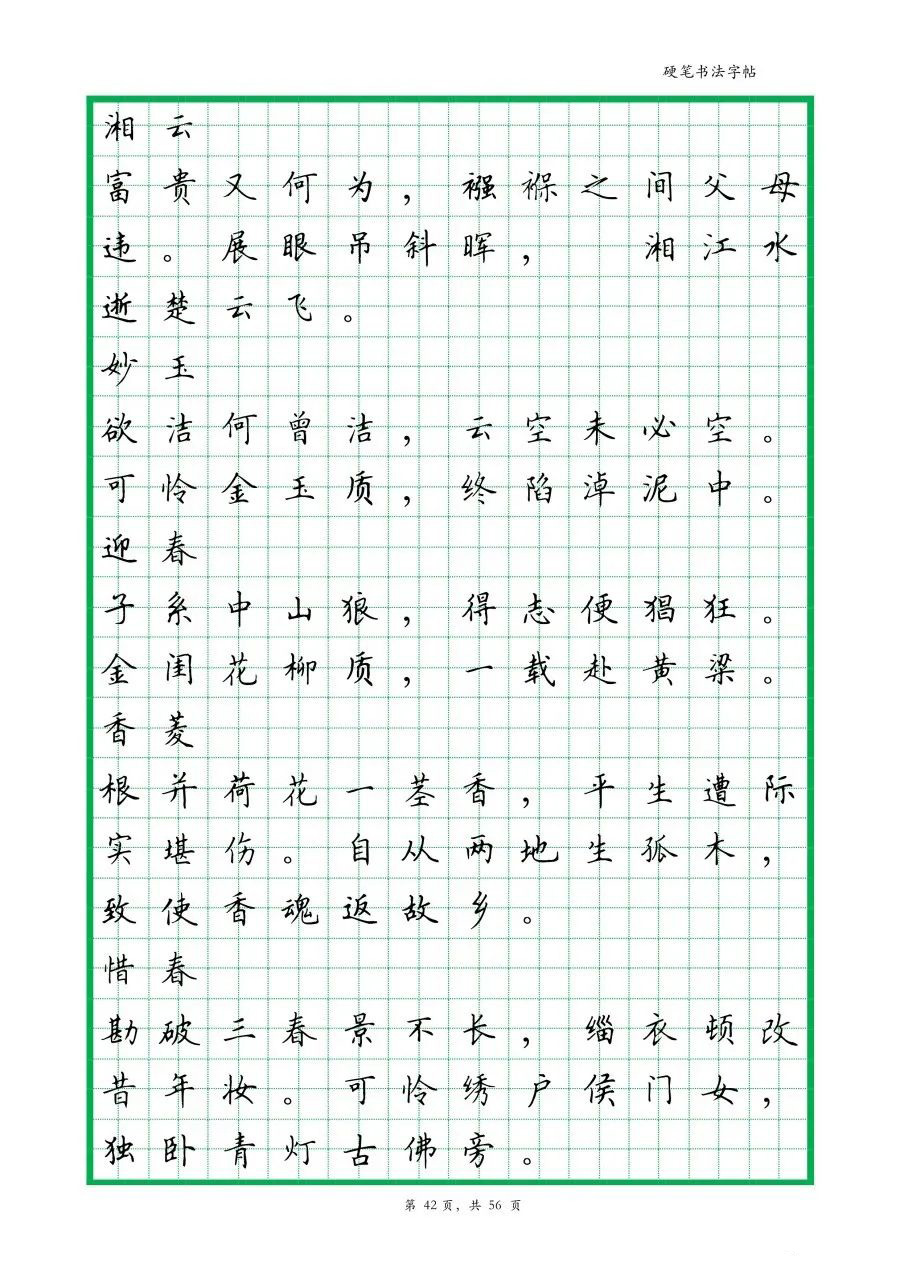 硬笔书法字帖
湘云
富贵又何为，襁褓之间父母
违。展眼吊斜晖， 湘江水
逝楚云飞。
妙玉
欲洁何曾洁，云空未必空。
可怜金玉质，终陷淖泥中。
迎春
子系中山狼，得志便猖狂。
金闺花柳质，一载赴黄梁。
香菱
根并荷花一茎香，平生遭际
实堪伤。自从两地生孤木，
致使香魂返故乡。
惜春
勘破三春景不长，缁衣顿改
昔年妆。可怜绣户侯门女，
独卧青灯古佛旁。
第 42 页，共 56 页